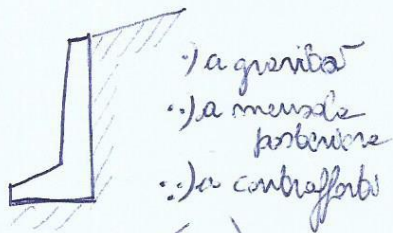 ·) a gravità
··) a mensola
posteriore
∴) a contrafforti